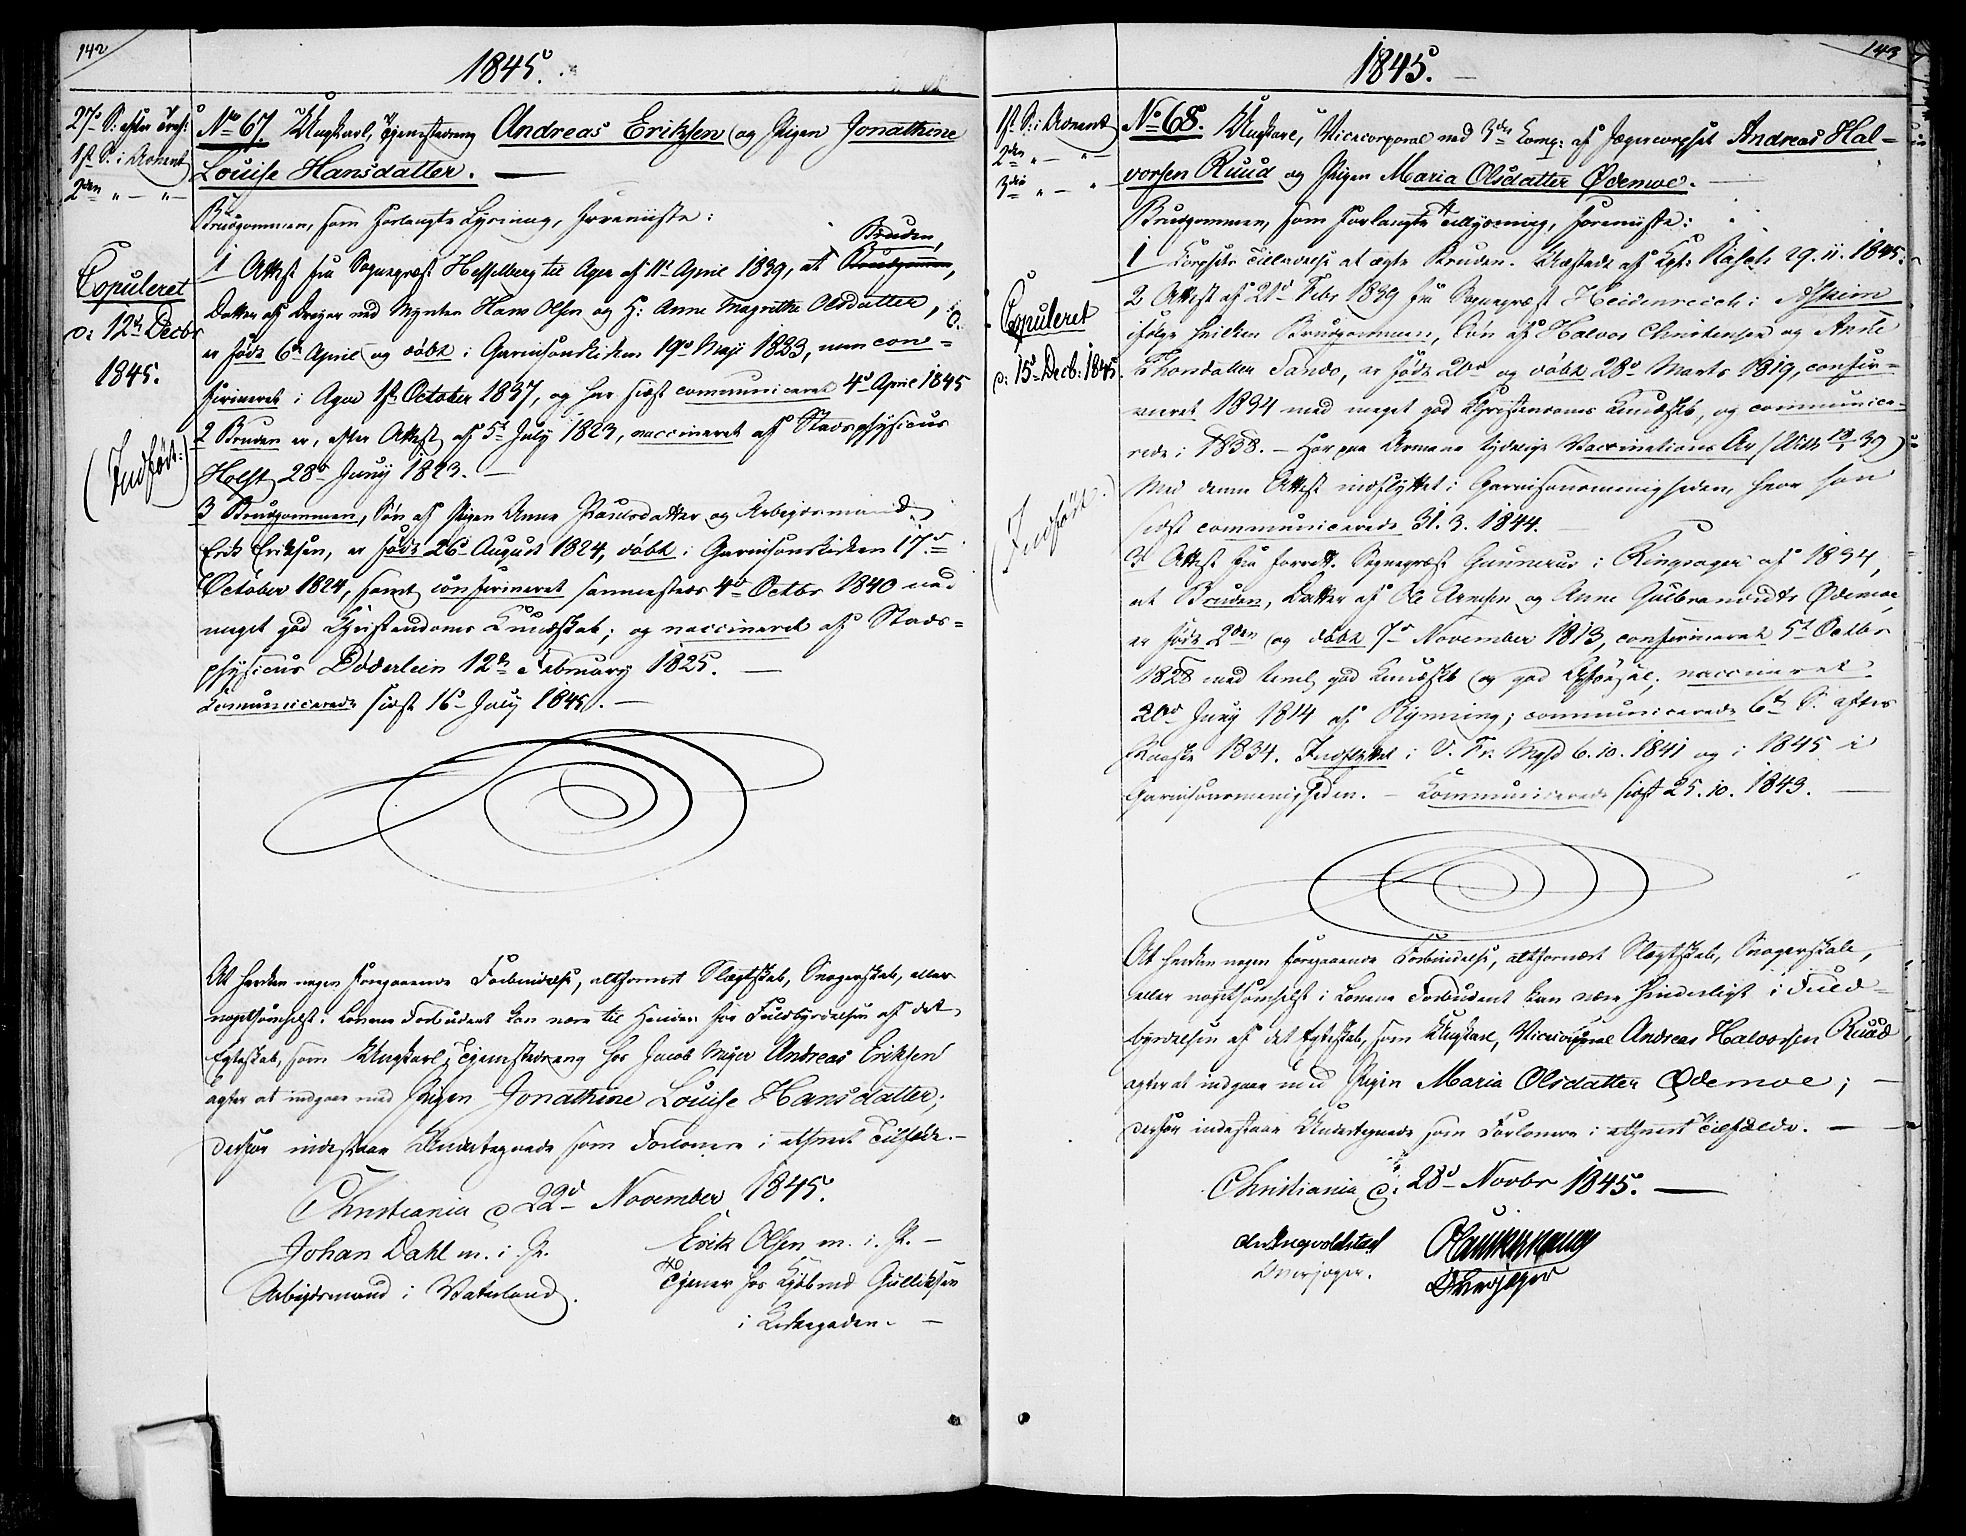 142
1845.
27d S: efter Tref:
1st S. i Advent
2den " — " —
No 67. Ungkarl, Tjenestedreng Andreas Eriksen og Pigen Jonathine
Louise Hansdatter. —
Brudgommen, som forlangte Lysning, foreviiste:
Bruden,
1 Attest fra Sognepræst Hesselberg til Ager af 11t April 1839, at Brudgommen,
Datter af Dreyer ved Mynten Hans Olsen og H: Anne Magrethe Olsdatter,
er født 6te April og døbt i Garnisonskirken 19d Maji 1823, won con-
firmeret i Ager 1st October 1837, og har sidst communiceret 4d April 1845
2 Bruden er, efter Attest af 5t July 1823, vaccineret af Stadsphysicus
Holst 28d Juny 1823. —
3 Brudgommen, Søn af Pigen Anne Paulsdatter og Arbejdsmand
Erik Eriksen, er født 26d August 1824, døbt i Garnisonskirken 17d
October 1824, samt confirmeret sammesteds 4d Octbr 1840 med
meget god Christendoms Kundskab; og vaccineret af Stads=
physicus Døderlein 12te February 1825. —
Comunicerede sidst 16d July 1845. —
Copuleret
d: 12te Decbr
1845.
(Indført:)
At hverken nogen foregaaende Forbindelse, altfornært Slægtskab, Svogerskab, eller
nogetsomhelst i Lovene Forbudent kan være til Hinder for Fuldbyrdelsen af det
Egteskab, som Ungkarl, Tjenestedreng hos Jacob Meyer Andreas Eriksen
agter at indgaae med Pigen Jonathine Louise Hansdatter;
derfor indestaae Undertegnede som Forlovere i ethvert Tilfælde. —
Christiania d 22d November 1845.
Johan Dahl m. i. P.
Arbejdsmand i Vaterland.
Erik Olsen m. i. P. —
Tjener hos Kjøbmd Gulliksen
i Kirkegaden. —
143
1845.
1st S: i Advent
2den " — " —
3die " — " —
No 68. Ungkarl, Vicecorporal ved 3de Comp: af Jægercorpset Andreas Hal-
vorsen Ruud og Pigen Maria Olsdatter Ødemoe. —
Brudgommen, som forlangte Tillysning, foreviiste:
1 Corpsets Tilladelse at ægte Bruden. Udstedt af Cpt: 29. 11. 1845.
2 Attest af 21d Febr 1839 fra Sognepræst Heidenreich i Askim
ifølge hvilken Brudgommen, Søn af Halvor Christensen og Anne
Thorsdatter Sando, er født 20d og døbt 28d Marts 1819, confir-
meret 1834 med meget god Christendoms Kundskb, og communice-
rede i 1838. — Har paa Armene tydelige Vaccinations Ar
Med denne Attest indflyttet i Garnisonsmenigheden, hvor han
sidst communicerede 31. 3. 1844. —
3 Attest fra forrett. Sognepræst Gunnerus i Ringsager af 1834,
at Bruden, Datter af Ole Arnesen og Anne Gulbrandsdtr Ødemoe,
er født 2den og døbt 7d November 1813, confirmeret 5t Octbr
1828 med temml god Kundskb og god Opførsel; vaccineret
20d Juny 1814 af Rynning; communicerede 6te S. efter
Paaske 1834. Indflyttet i V. Fr. Mgħd 6. 10. 1841 og i 1845 i
Garnisonsmenigheden. — Communicerede sidst 25. 10. 1843. —
Copuleret
d: 15d Decb: 1845.
(Indført:)
At hverken nogen foregaaende Forbindelse, altfornært Slægtskab, Svogerskab,
eller nogetsomhelst i Lovene Forbudent kan være hinderligt i Fuld-
byrdelsen af det Egteskab, som Ungkarl, Vicecorporal Andreas Halvorsen Ruud
agter at indgaae med Pigen Maria Olsdatter Ødemoe; —
derfor indestaae Undertegnede som Forlovere i ethvert Tilfælde. —
Christiania d: 28d Novbr 1845. —
Overjæger.
Overjæger